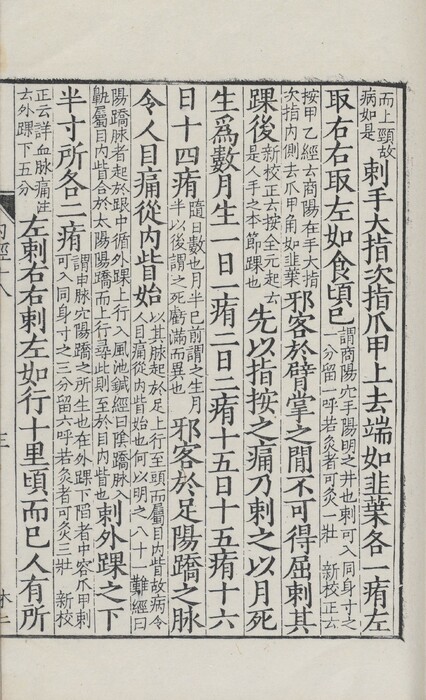 而上頸故
病如是
刺手大指次指爪甲上去端如韭葉各一痏左
取右右取左如食頃已
謂商陽穴手陽明之井也刺可入同身寸之
一分留一呼若灸者可灸一壯 新校正云
按甲乙經云商陽在手大指
次指内側去爪甲角如韭葉
邪客於臂掌之閒不可得屈刺其
踝後
新校正云按全元起云
是人手之本節踝也
先以指按之痛乃刺之以月死
生爲數月生一日一痏二日二痏十五日十五痏十六
日十四痏
隨日數也月半已前謂之生月
半以後謂之死虧滿而異也
邪客於足陽蹻之脉
令人目痛從内眥始
以其脉起於足上行至頭而屬目内眥故病令
人目痛從内眥始也何以明之八十一難經曰
陽蹻脉者起於跟中循外踝上行入風池鍼經曰陰蹻脉入
鼽屬目内眥合於太陽陽蹻而上行尋此則至於目内眥也
刺外踝之下
半寸所各二痏
謂申脉穴陽蹻之所生也在外踝下陷者中容爪甲刺
可入同身寸之三分留六呼若灸者可灸三壯 新校
正云詳血脉痛注
云外踝下五分
左刺右右刺左如行十里頃而已人有所
三